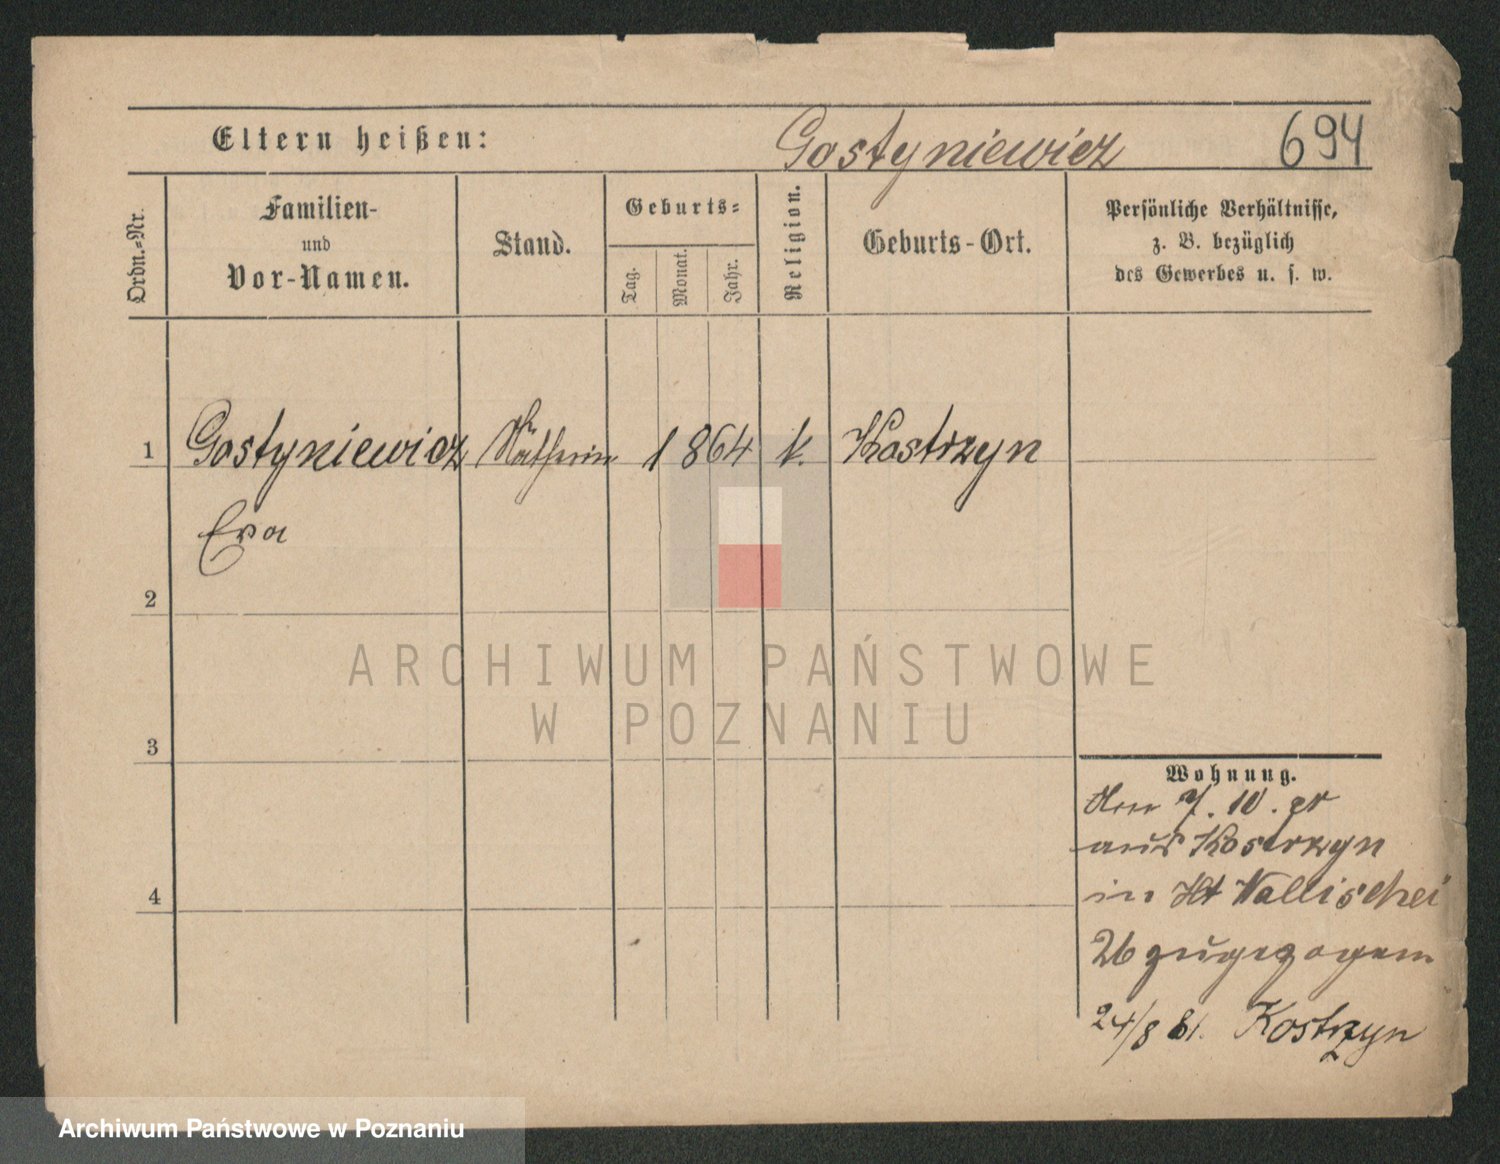 Eltern heißen:
Gostyniewicz
694
Ordn.-Nr.
Familien-
und
Vor-Namen.
Stand.
Geburts-
Tag.
Monat.
Jahr.
Religion.
Geburts-Ort.
Persönliche Verhältnisse,
z. B. bezüglich
des Gewerbes u. s. w.
1
Gostyniewicz
Nätherin
1864
k.
Kostrzyn
Eva
2
3
4
Wohnung.
7. 10. cr
aus Kostrzyn
in Wallischei
26 zugezogen
24/8 81. Kostrzyn
ARCHIWUM PAŃSTWOWE
W POZNANIU
Archiwum Państwowe w Poznaniu